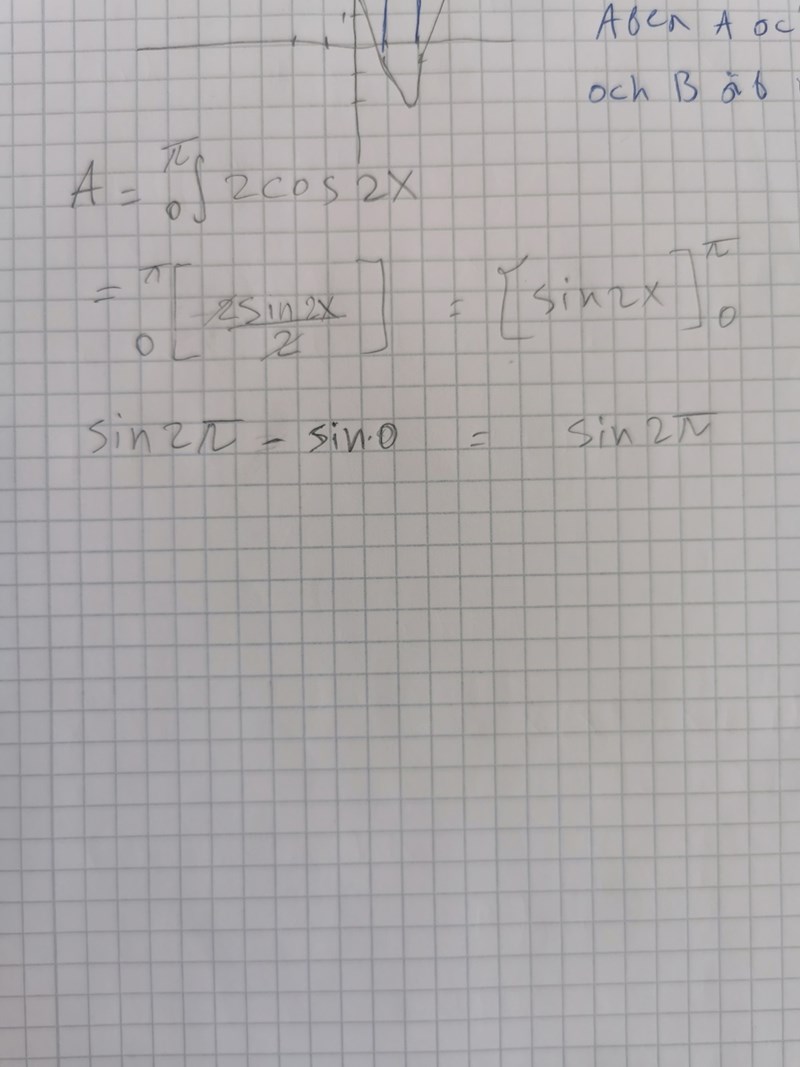 Aben A oc
och B äb
A = π∫0 2cos2x
= π[2sin2x/2]0 = [sin2x]π0
sin2π - sin·0 = sin2π